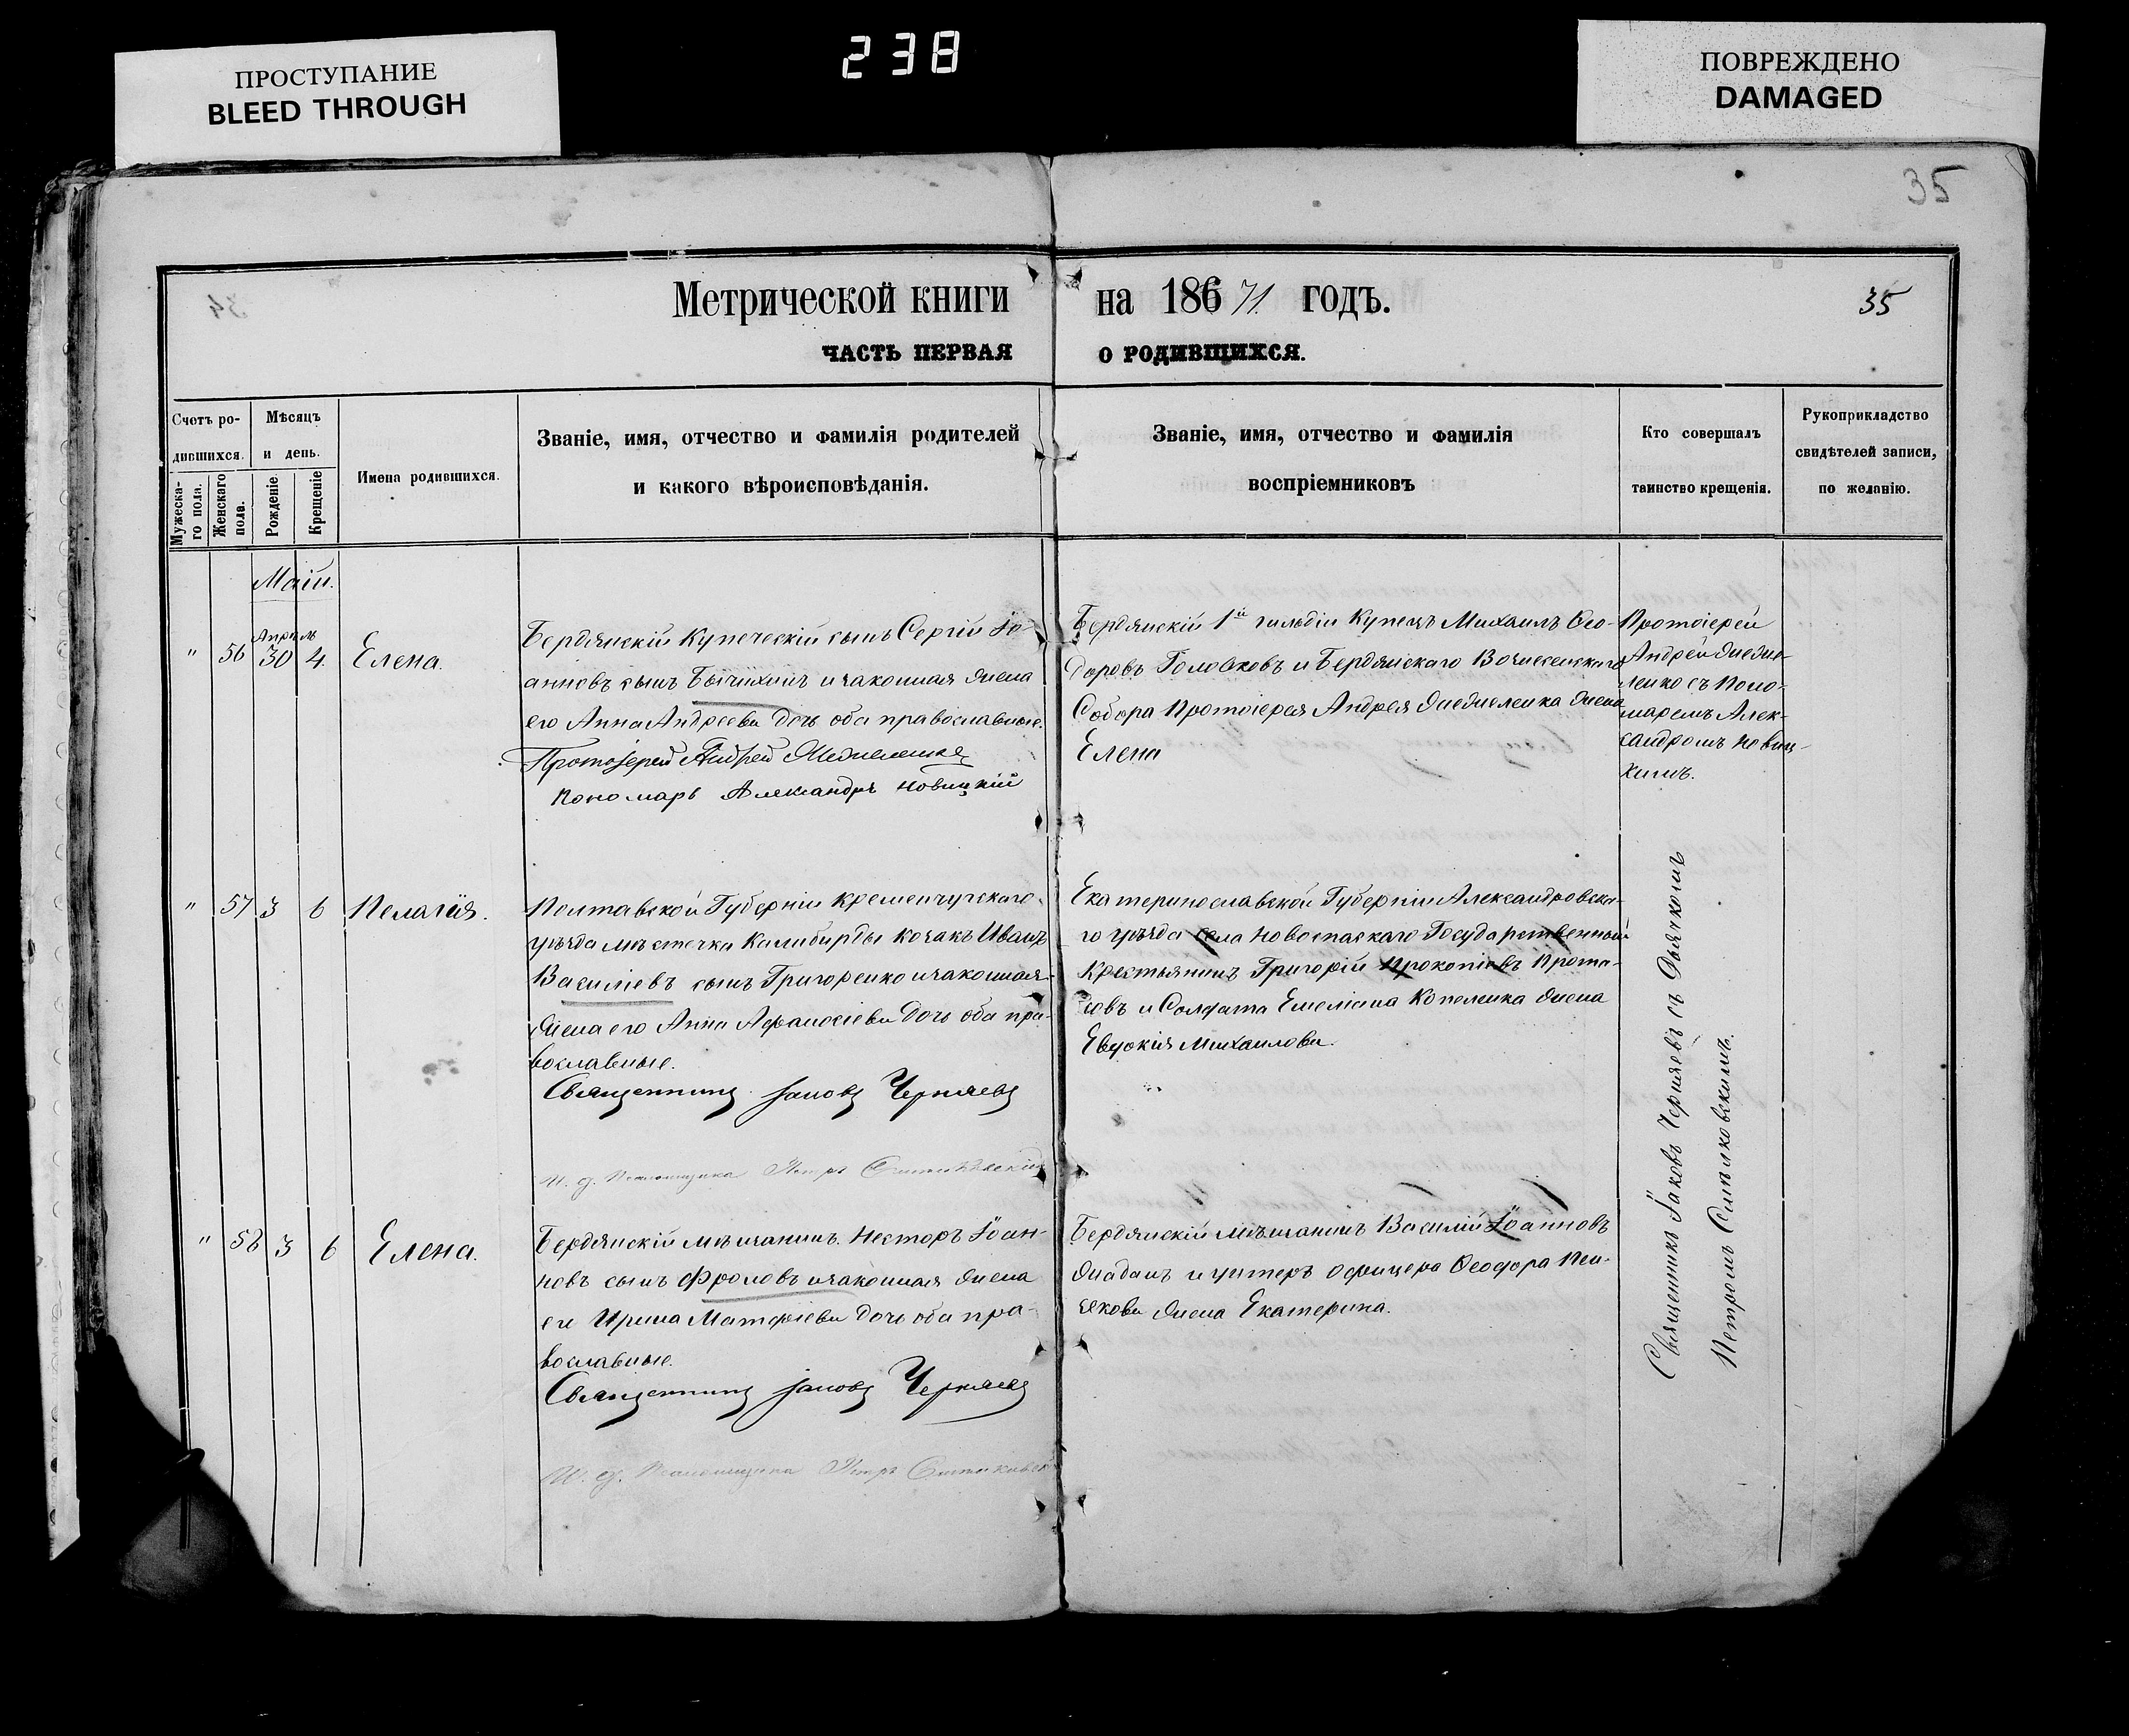 ПРОСТУПАНИЕ
BLEED THROUGH
238
ПОВРЕЖДЕНО
DAMAGED
35
Метрической книги на 18671 годъ.
35
ЧАСТЬ ПЕРВАЯ О РОДИВШИХСЯ.
Счетъ ро-
дившихся.
Мужеска-
го пола.
Женскаго
пола.
Мѣсяцъ
и день.
Рожденіе.
Крещеніе
Имена родившихся.
Званіе, имя, отчество и фамилія родителей
и какого вѣроисповѣданія.
Званіе, имя, отчество и фамилія
воспріемниковъ
Кто совершалъ
таинство крещенія.
Рукоприкладство
свидѣтелей записи,
по желанію.
Май.
Апрѣль
" 56 30 4. Елена.
Бердянскій Купеческій сынъ Сергій Іо-
анновъ сынъ и законная жена
его Анна Андреева дочь оба православные.
Протоіерей Андрей
Пономарь Александръ Новицкій
Бердянскій 1й гильдіи Купецъ Михаилъ Ѳео-
доровъ Головковъ и Бердянскаго Вознесенскаго
Собора Протоіерея Андрея жена
Елена
Протоіерей
Андрей
ленко съ Поно-
маремъ Алек-
сандромъ Новиц-
кимъ.
" 57 3 6 Пелагія.
Полтавской Губерніи Кременчугскаго
уѣзда мѣстечка Калибирды козакъ Иванъ
Васильевъ сынъ Григоренко и законная
жена его Анна Афанасіева дочь оба пра-
вославные.
Священникъ Іаковъ Черняевъ
И. д. Псаломщика Петръ
Екатеринославской Губерніи Александровска-
го уѣзда села Новоспаскаго Государственный
Крестьянинъ Григорій Прокопіевъ Прота-
совъ и Солдата Емеліана Копеленка жена
Евдокія Михаилова.
" 58 3 6 Елена.
Бердянскій мѣщанинъ Несторъ Іоан-
новъ сынъ Фроловъ и законная жена
его Ирина Матфіева дочь оба пра-
вославные.
Священникъ Іаковъ Черняевъ
И. д. Псаломщика Петръ
Бердянскій мѣщанинъ Василій Іоанновъ
Жаданъ и унтеръ офицера Ѳеодора
жена Екатерина.
Священникъ Іаковъ Черняевъ съ Дьячкомъ
Петромъ